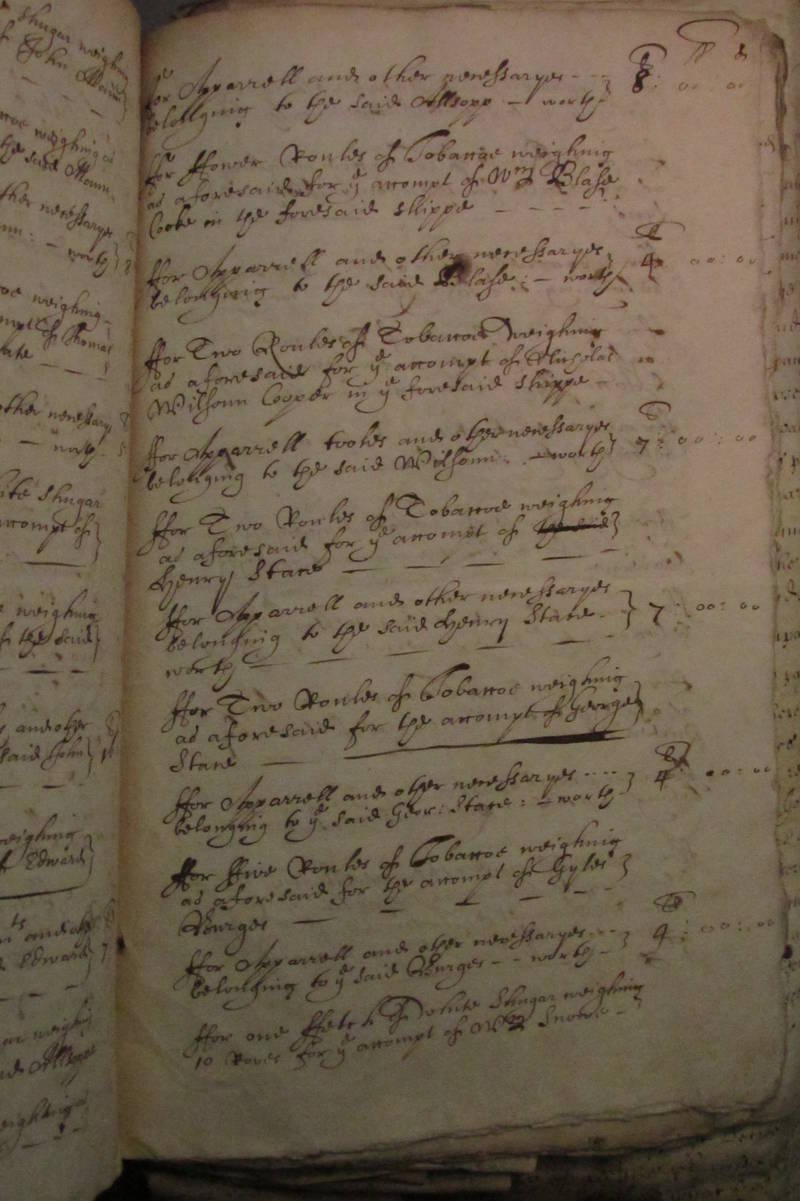 Shugar weighing
of John
weighing as
the said
other necessaryes
worth
weighing
of Thomas
other necessary
worth
white Shugar
accompt of
weighing
of the said
and other
said John
weighing
of Edward
and other
Edward
weighing
said Allsopp
weighing
ffor Apparrell and other necessaryes - - -
belonging to the said Allsopp - worth 8 : 00 : 00
ffor ffower Roules of Tobaccoe weighing
as aforesaid for ye accompt of Wm Blake
Cooke in the foresaid shippe - - - -
ffor Apparrell and other necessaryes
belonging to the said Blake : - worth 4 : 00 : 00
ffor Two Roules of Tobaccoe weighing
as aforesaid for ye accompt of Nicholas
Wilsonn Cooper in ye foresaid shippe -
ffor Apparrell tooles and other necessaryes
belonging to the said Wilsonn : - worth 7 : 00 : 00
ffor Two Roules of Tobaccoe weighing
as aforesaid for ye accompt of the said
Henry Stace - - - -
ffor Apparrell and other necessaryes
belonging to the said Henry Stace - 7 : 00 : 00
worth - - - -
ffor Two Roules of Tobaccoe weighing
as aforesaid for the accompt of George
Stace -
ffor Apparrell and other necessaryes - - - -
belonging to ye said Geor: Stace : - worth 4 : 00 : 00
ffor ffive Roules of Tobaccoe weighing
as aforesaid for the accompt of Gyles
Bourges - - - -
ffor Apparrell and other necessaryes - - -
belonging to ye said Bourges - - worth - 4 : 00 : 00
ffor one ffetch of white Shugar weighing
10 Roves for ye accompt of Wm Snowe -